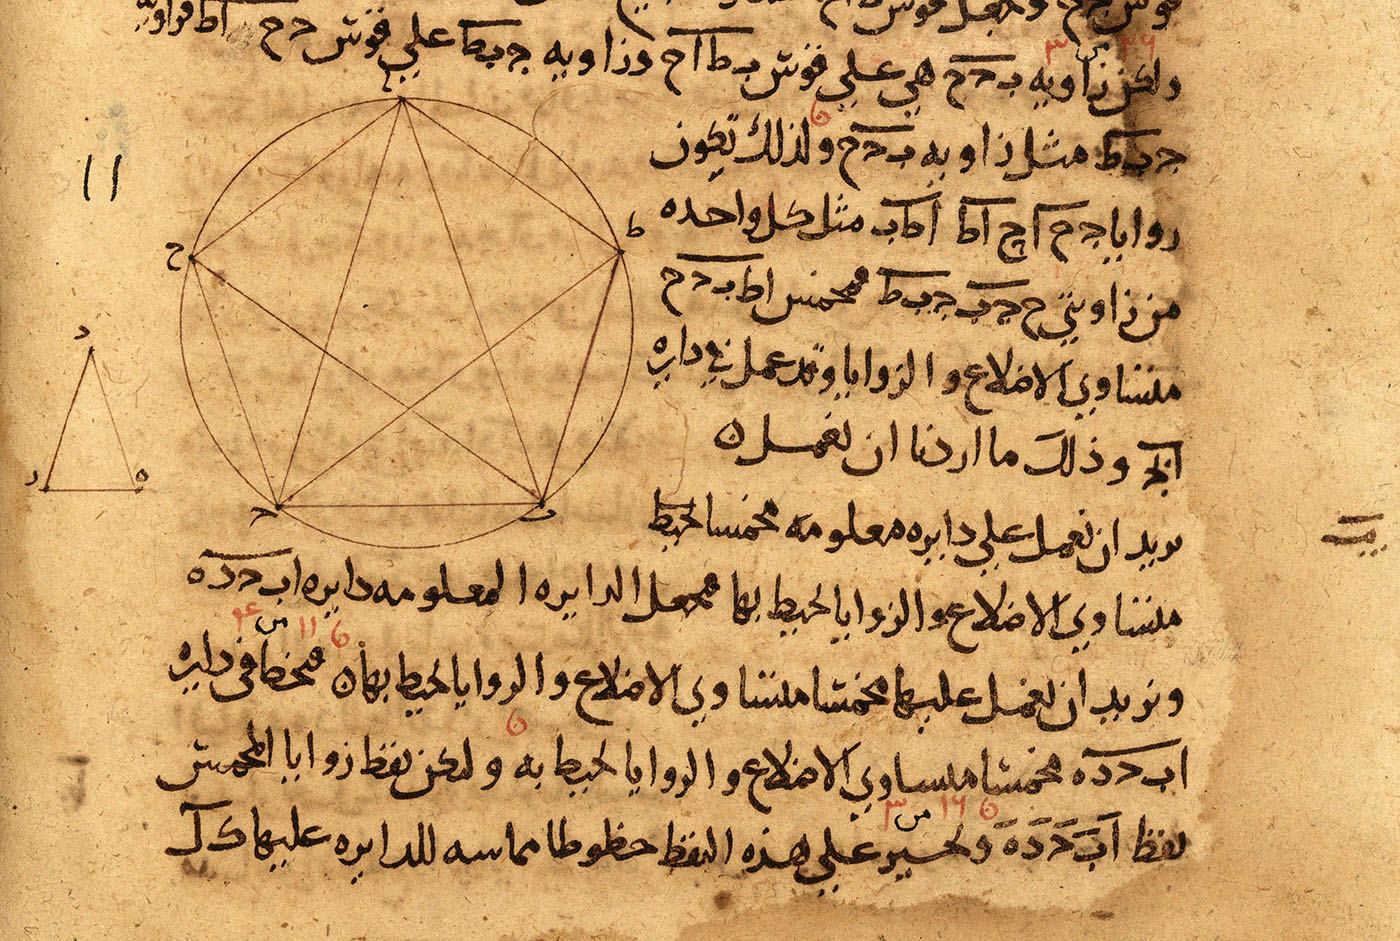 قوس جح ونجعل قوس
ولكن زاويه بجح هي علي قوس بطاح وزاويه جبط علي قوس جح اط فزاويه
٢٦ من ٣
جبط مثل زاويه بجح ولذلك تكون
زوايا جح اح اط اطب مثل كل واحده
من زاويتي ح جب جبط فمخمس اطبجح
متساوي الاضلاع والزوايا وقد عمل في دايره
ابج وذلك ما اردنا ان نعمل ن
نريد ان نعمل علي دايره معلومه مخمسا يحيط
متساوي الاضلاع والزوايا يحيط بها فنجعل الدايره المعلومه دايره ابجده
ونريد ان نعمل عليها مخمسا متساوي الاضلاع والزوايا يحيط بها ن فنخط في دايره
١١ من ٤
ابجده مخمسا متساوي الاضلاع والزوايا يحيط به ولتكن نقط زوايا المخمس
نقط ا ب ج د ه ونجيز علي هذه النقط خطوطا مماسه للدايره عليها كل
١٦ من ٣
١١
ا
ط
ح
ج
ب
د
ر
ه
يب